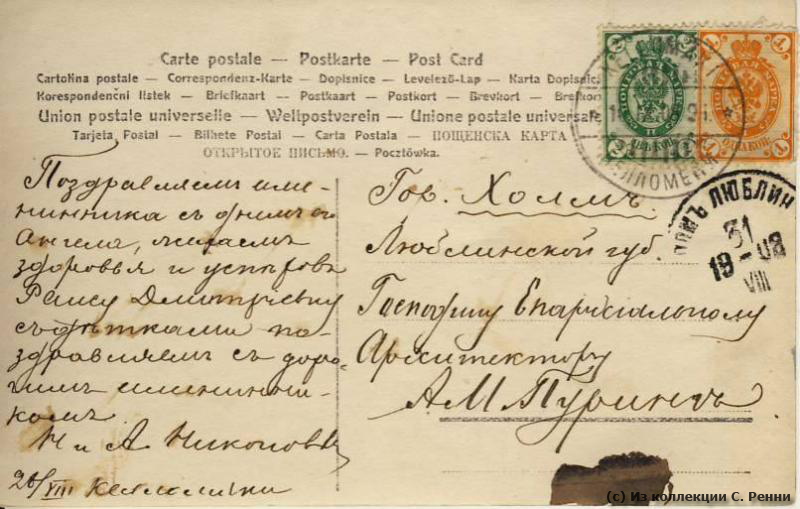 Carte postale — Postkarte — Post Card
Cartolina postale — Correspondenz-Karte — Dopisnice — Levelező-Lap — Karta Dopisnic
Korespondenční lístek — Briefkaart — Postkaart — Postkort — Brevkort — Brefkor
Union postale universelle — Weltpostverein — Unione postale universale
Tarjeta Postal — Bilhete Postal — Carta Postala — ПОЩЕНСКА КАРТА
ОТКРЫТОЕ ПИСЬМО. — Pocztówka.
Поздравляемъ име-
нинника съ днемъ
Ангела, желаемъ
здоровья и успѣховъ
Раису Дмитріевну
съ дѣтками по-
здравляемъ съ доро-
гимъ именинни-
комъ
Н и А. Никоновы
26/VIII Келломяки
Гор. Холмъ
Люблинской губ.
Господину Епархіальному
Архитектору
А М Пуринъ
ХОЛМЪ ЛЮБЛИН
31
19 - 08
VIII
(c) Из коллекции С. Ренни